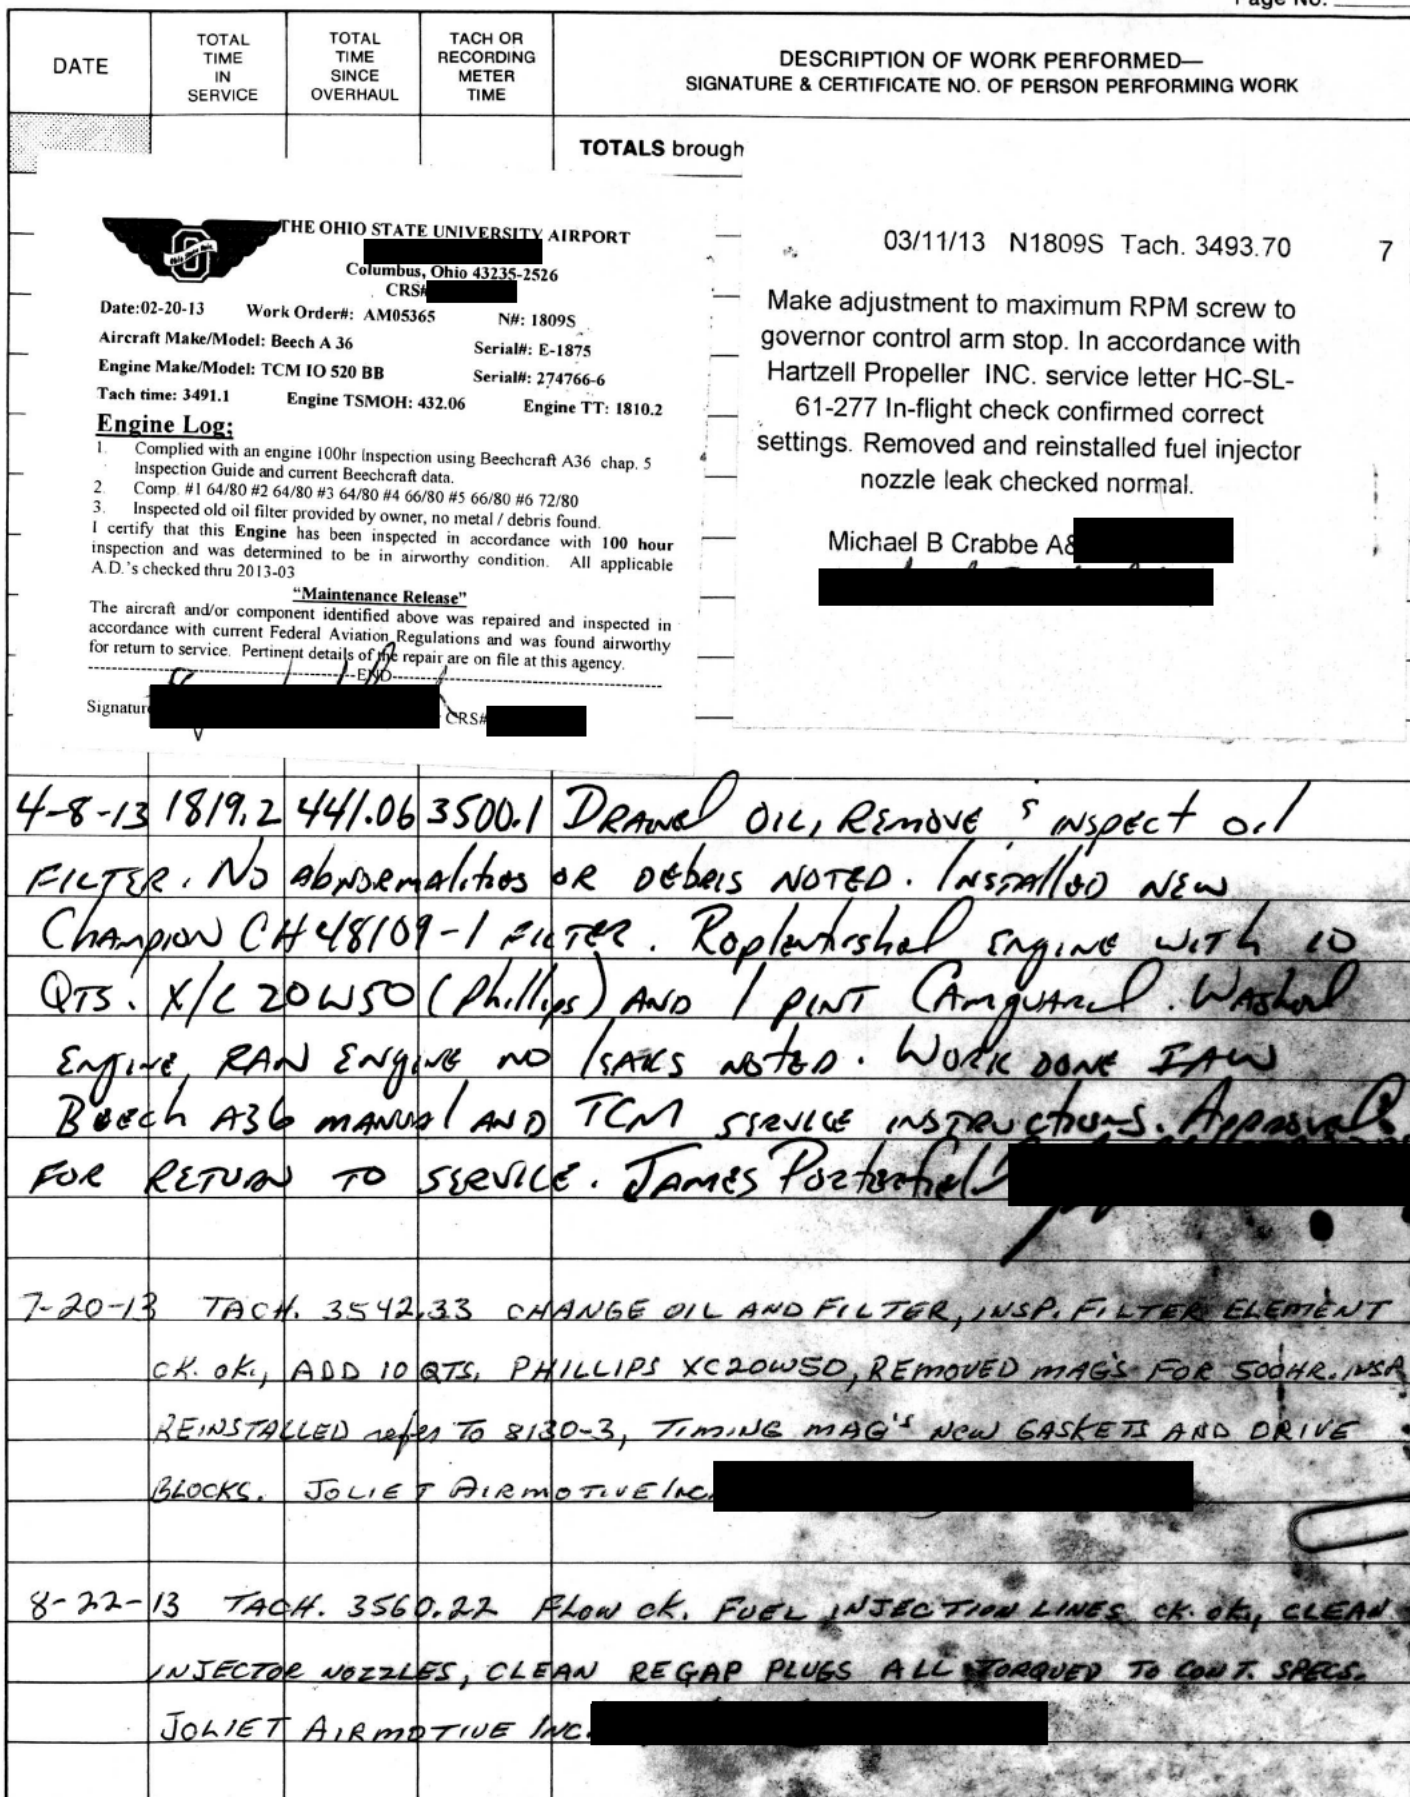 Page No.
DATE
TOTAL TIME IN SERVICE
TOTAL TIME SINCE OVERHAUL
TACH OR RECORDING METER TIME
DESCRIPTION OF WORK PERFORMED—
SIGNATURE & CERTIFICATE NO. OF PERSON PERFORMING WORK
TOTALS brough
THE OHIO STATE UNIVERSITY AIRPORT
Columbus, Ohio 43235-2526
CRS#
Date:02-20-13 Work Order#: AM05365 N#: 1809S
Aircraft Make/Model: Beech A 36 Serial#: E-1875
Engine Make/Model: TCM IO 520 BB Serial#: 274766-6
Tach time: 3491.1 Engine TSMOH: 432.06 Engine TT: 1810.2
Engine Log:
1. Complied with an engine 100hr Inspection using Beechcraft A36 chap. 5
Inspection Guide and current Beechcraft data.
2. Comp. #1 64/80 #2 64/80 #3 64/80 #4 66/80 #5 66/80 #6 72/80
3. Inspected old oil filter provided by owner, no metal / debris found.
I certify that this Engine has been inspected in accordance with 100 hour
inspection and was determined to be in airworthy condition. All applicable
A.D.'s checked thru 2013-03
"Maintenance Release"
The aircraft and/or component identified above was repaired and inspected in
accordance with current Federal Aviation Regulations and was found airworthy
for return to service. Pertinent details of the repair are on file at this agency.
END
Signature CRS#
03/11/13 N1809S Tach. 3493.70 7
Make adjustment to maximum RPM screw to
governor control arm stop. In accordance with
Hartzell Propeller INC. service letter HC-SL-
61-277 In-flight check confirmed correct
settings. Removed and reinstalled fuel injector
nozzle leak checked normal.
Michael B Crabbe A&
4-8-13 1819.2 441.06 3500.1 DRAINED OIL, REMOVE & INSPECT OIL
FILTER. NO ABNORMALITIES OR DEBRIS NOTED. INSTALLED NEW
CHAMPION CH48109-1 FILTER. Replentished ENGINE WITH 10
QTS. X/C 20W50 (Phillips) AND 1 PINT CAMGUARD. WASHED
ENGINE, RAN ENGINE NO LEAKS NOTED. WORK DONE IAW
BEECH A36 MANUAL AND TCM SERVICE INSTRUCTIONS. APPROVED
FOR RETURN TO SERVICE. JAMES Porterfield
7-20-13 TACH. 3542.33 CHANGE OIL AND FILTER, INSP. FILTER ELEMENT
CK. OK., ADD 10 QTS. PHILLIPS XC20W50, REMOVED MAG'S FOR 500HR. INSP
REINSTALLED refer TO 8130-3, TIMING MAG'S NEW GASKETS AND DRIVE
BLOCKS. JOLIET AIRMOTIVE INC.
8-22-13 TACH. 3560.22 FLOW CK. FUEL INJECTION LINES CK. OK., CLEAN
INJECTOR NOZZLES, CLEAN REGAP PLUGS ALL TORQUED TO CONT. SPECS.
JOLIET AIRMOTIVE INC.